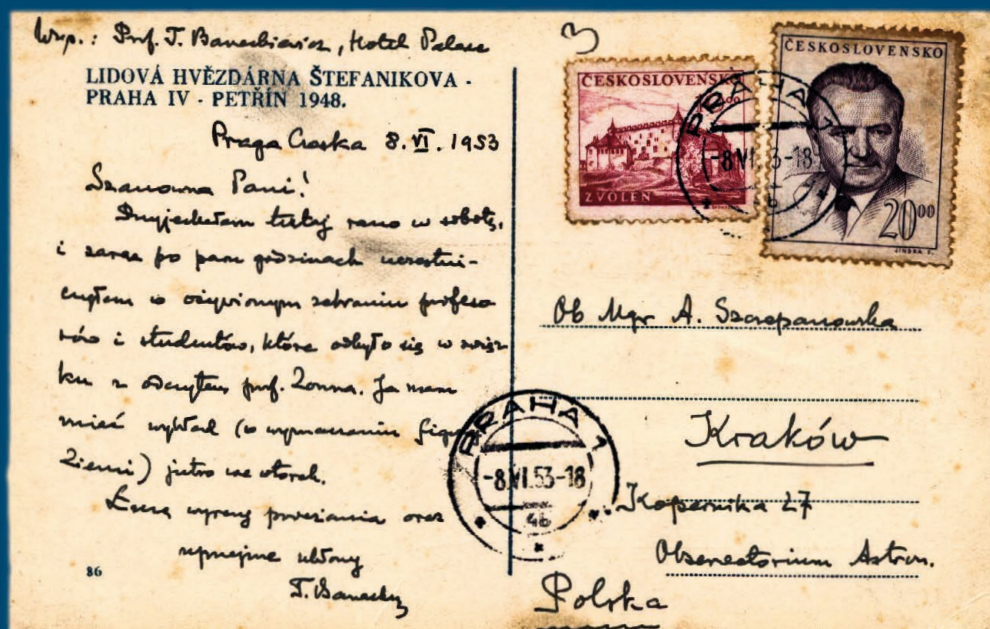 Wsp.: Prof. T. Banachiewicz, Hotel Palace
LIDOVÁ HVĚZDÁRNA ŠTEFANIKOVA -
PRAHA IV - PETŘÍN 1948.
Praga Czeska 8.VI.1953
Szanowna Pani!
Przyjechałem tutaj rano w sobotę,
i zaraz po paru godzinach uczestni-
czyłem w ożywionym zebraniu profeso
rów i studentów, które odbyło się w związ
ku z odczytem prof. Zonna. Ja mam
mieć wykład (o wyznaczaniu figury
Ziemi) jutro we wtorek.
Łączę wyrazy poważania oraz
uprzejme ukłony
T. Banach
86
3
ČESKOSLOVENSKO
ZVOLEN
ČESKOSLOVENSKO
20⁰⁰
PRAHA 1
-8.VI.53-18
Ob Mgr A. Szczepanowska
Kraków
Kopernika 27
Obserwatorium Astron.
Polska
PRAHA 1
-8.VI.53-18
4b